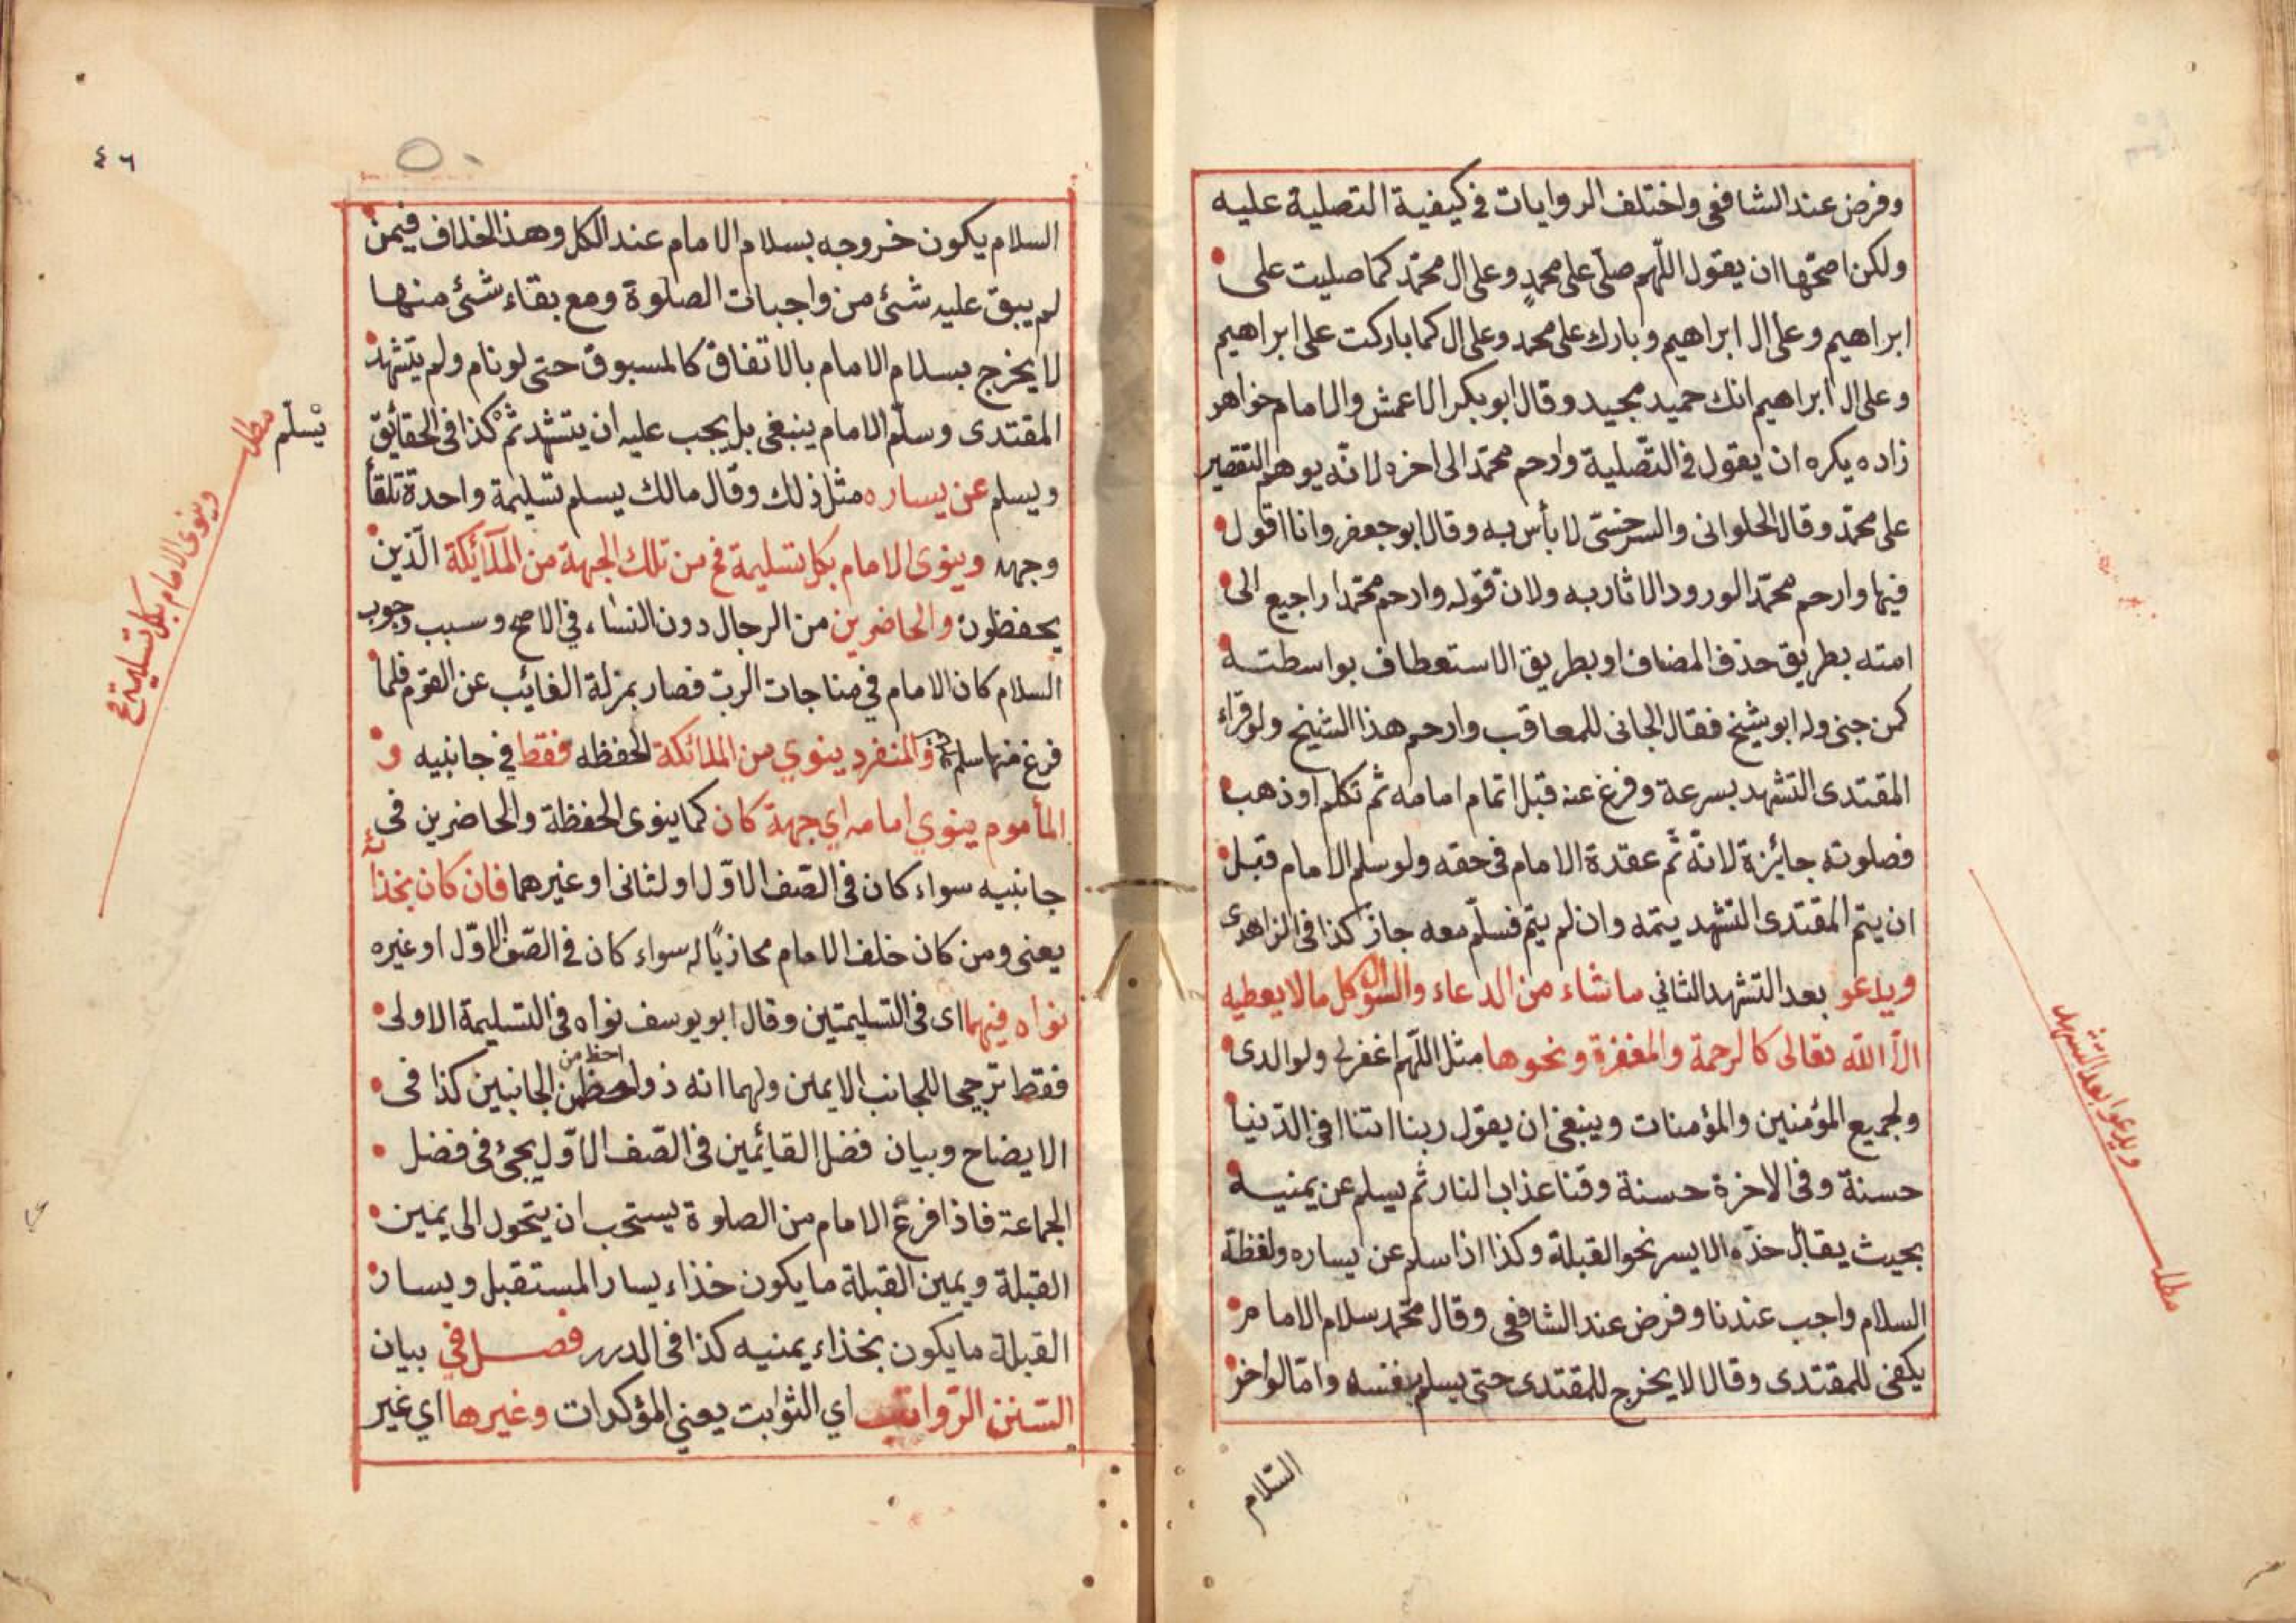 وفرض عند الشافعى واختلف الروايات فى كيفية التصلية عليه
ولكن اصحّها ان يقول اللّهم صلّ على محمدٍ وعلى ال محمّد كما صليت على
ابراهيم وعلى ال ابراهيم وبارك على محمد وعلى ال كما باركت على ابراهيم
وعلى ال ابراهيم انك حميد مجيد وقال ابو بكر الاعمش والامام خواهر
زاده يكره ان يقول فى التّصلية وارحم محمّد الى اخره لانّه يوهم التقصير
على محمّد وقال الحلوانى والسرخسّى لا بأس به وقال ابو جعفر وانا اقول
فيها وارحم محمّد الورود الاثار به ولان قوله وارحم محمّدا راجع الى
امته بطريق حذف المضاف او بطريق الاستعطاف بواسطته
كمن جنى وله ابو يشيخ فقال الجانى للمعاقب وارحم هذا الشيخ ولو قراء
المقتدى التشهد بسرعة وفرغ عنه قبل اتمام امامه ثم تكلم او ذهب
فصلوته جائزة لانّه ثم عقدة الامام فى حقه ولو سلم الامام قبل
ان يتم المقتدى التشهد يتمه وان لم يتم فسلّم معه جاز كذا فى الزاهدى
ويدعو بعد التشهد الثاني ما شاء من الدعاء والسؤال كل ما لا يعطيه
الاّ اللّه تعالى كالرحمة والمغفرة ونحوها مثل اللّهم اغفر لى ولوالدى
ولجميع المؤمنين والمؤمنات وينبغى ان يقول ربنا اتنا فى الدّنيا
حسنة وفى الاخرة حسنة وقنا عذاب النار ثم يسلم عن يمينه
بحيث يقابل خدّه الايسر نحو القبلة وكذا اذا سلم عن يساره ولفظة
السلام واجب عندنا وفرض عند الشافعى وقال محمّد سلام الامام
يكفى للمقتدى وقالا لا يخرج للمقتدى حتى يسلم بنفسه وامّا لو اخر
السّلام
ويدعوا بعد التشهد
مطلب
٤٦
٥٠
السلام يكون خروجه بسلام الامام عند الكل وهذا الخلاف فيمن
لم يبق عليه شئ من واجبات الصلوة ومع بقاء شئ منها
لا يخرج بسلام الامام بالاتفاق كالمسبوق حتى لو نام ولم يتشهد
المقتدى وسلّم الامام ينبغى بل يجب عليه ان يتشهد ثم كذا فى الحقائق
يسلّم
ويسلم عن يساره مثل ذلك وقال مالك يسلم تسليمة واحدة تلقأ
وجهه وينوى الامام بكل تسليمة فى من تلك الجهة من الملآئكة الّذين
يحفظون والحاضرين من الرجال دون النساء فى الاصح وسبب وجوب
السلام كان الامام فى مناجات الربّ فصار بمنزلة الغائب عن القوم فلما
فرغ منها سلم والمنفرد ينوي من الملائكة الحفظه فقط في جانبيه و
المأموم ينوي امامه اي جهة كان كما ينوى الحفظة والحاضرين فى
جانبيه سواء كان فى الصّف الاوّل او لثانى او غيرهما فان كان بخذائه
يعنى ومن كان خلف الامام محاذيًا له سواء كان فى الصّف الاوّل او غيره
نواه فيهما اى فى التسليمتين وقال ابو يوسف نواه فى التسليمة الاولى
فقط ترجيحا للجانب الايمن ولهما انه ذو احظ من الجانبين كذا فى
احظ من
الايضاح وبيان فضل القائمين فى الصّف الاوّل يجئ فى فضل
الجماعة فاذا فرغ الامام من الصلوة يستحب ان يتحول الى يمين
القبلة ويمين القبلة ما يكون خذاء يسار المستقبل ويسار
القبلة ما يكون بخذاء يمنيه كذا فى الدرر فصل في بيان
السّنن الرّواتب اي الثوابت يعني المؤكدات وغيرها اي غير
مطلب
وينوى الامام بكل تسليمة